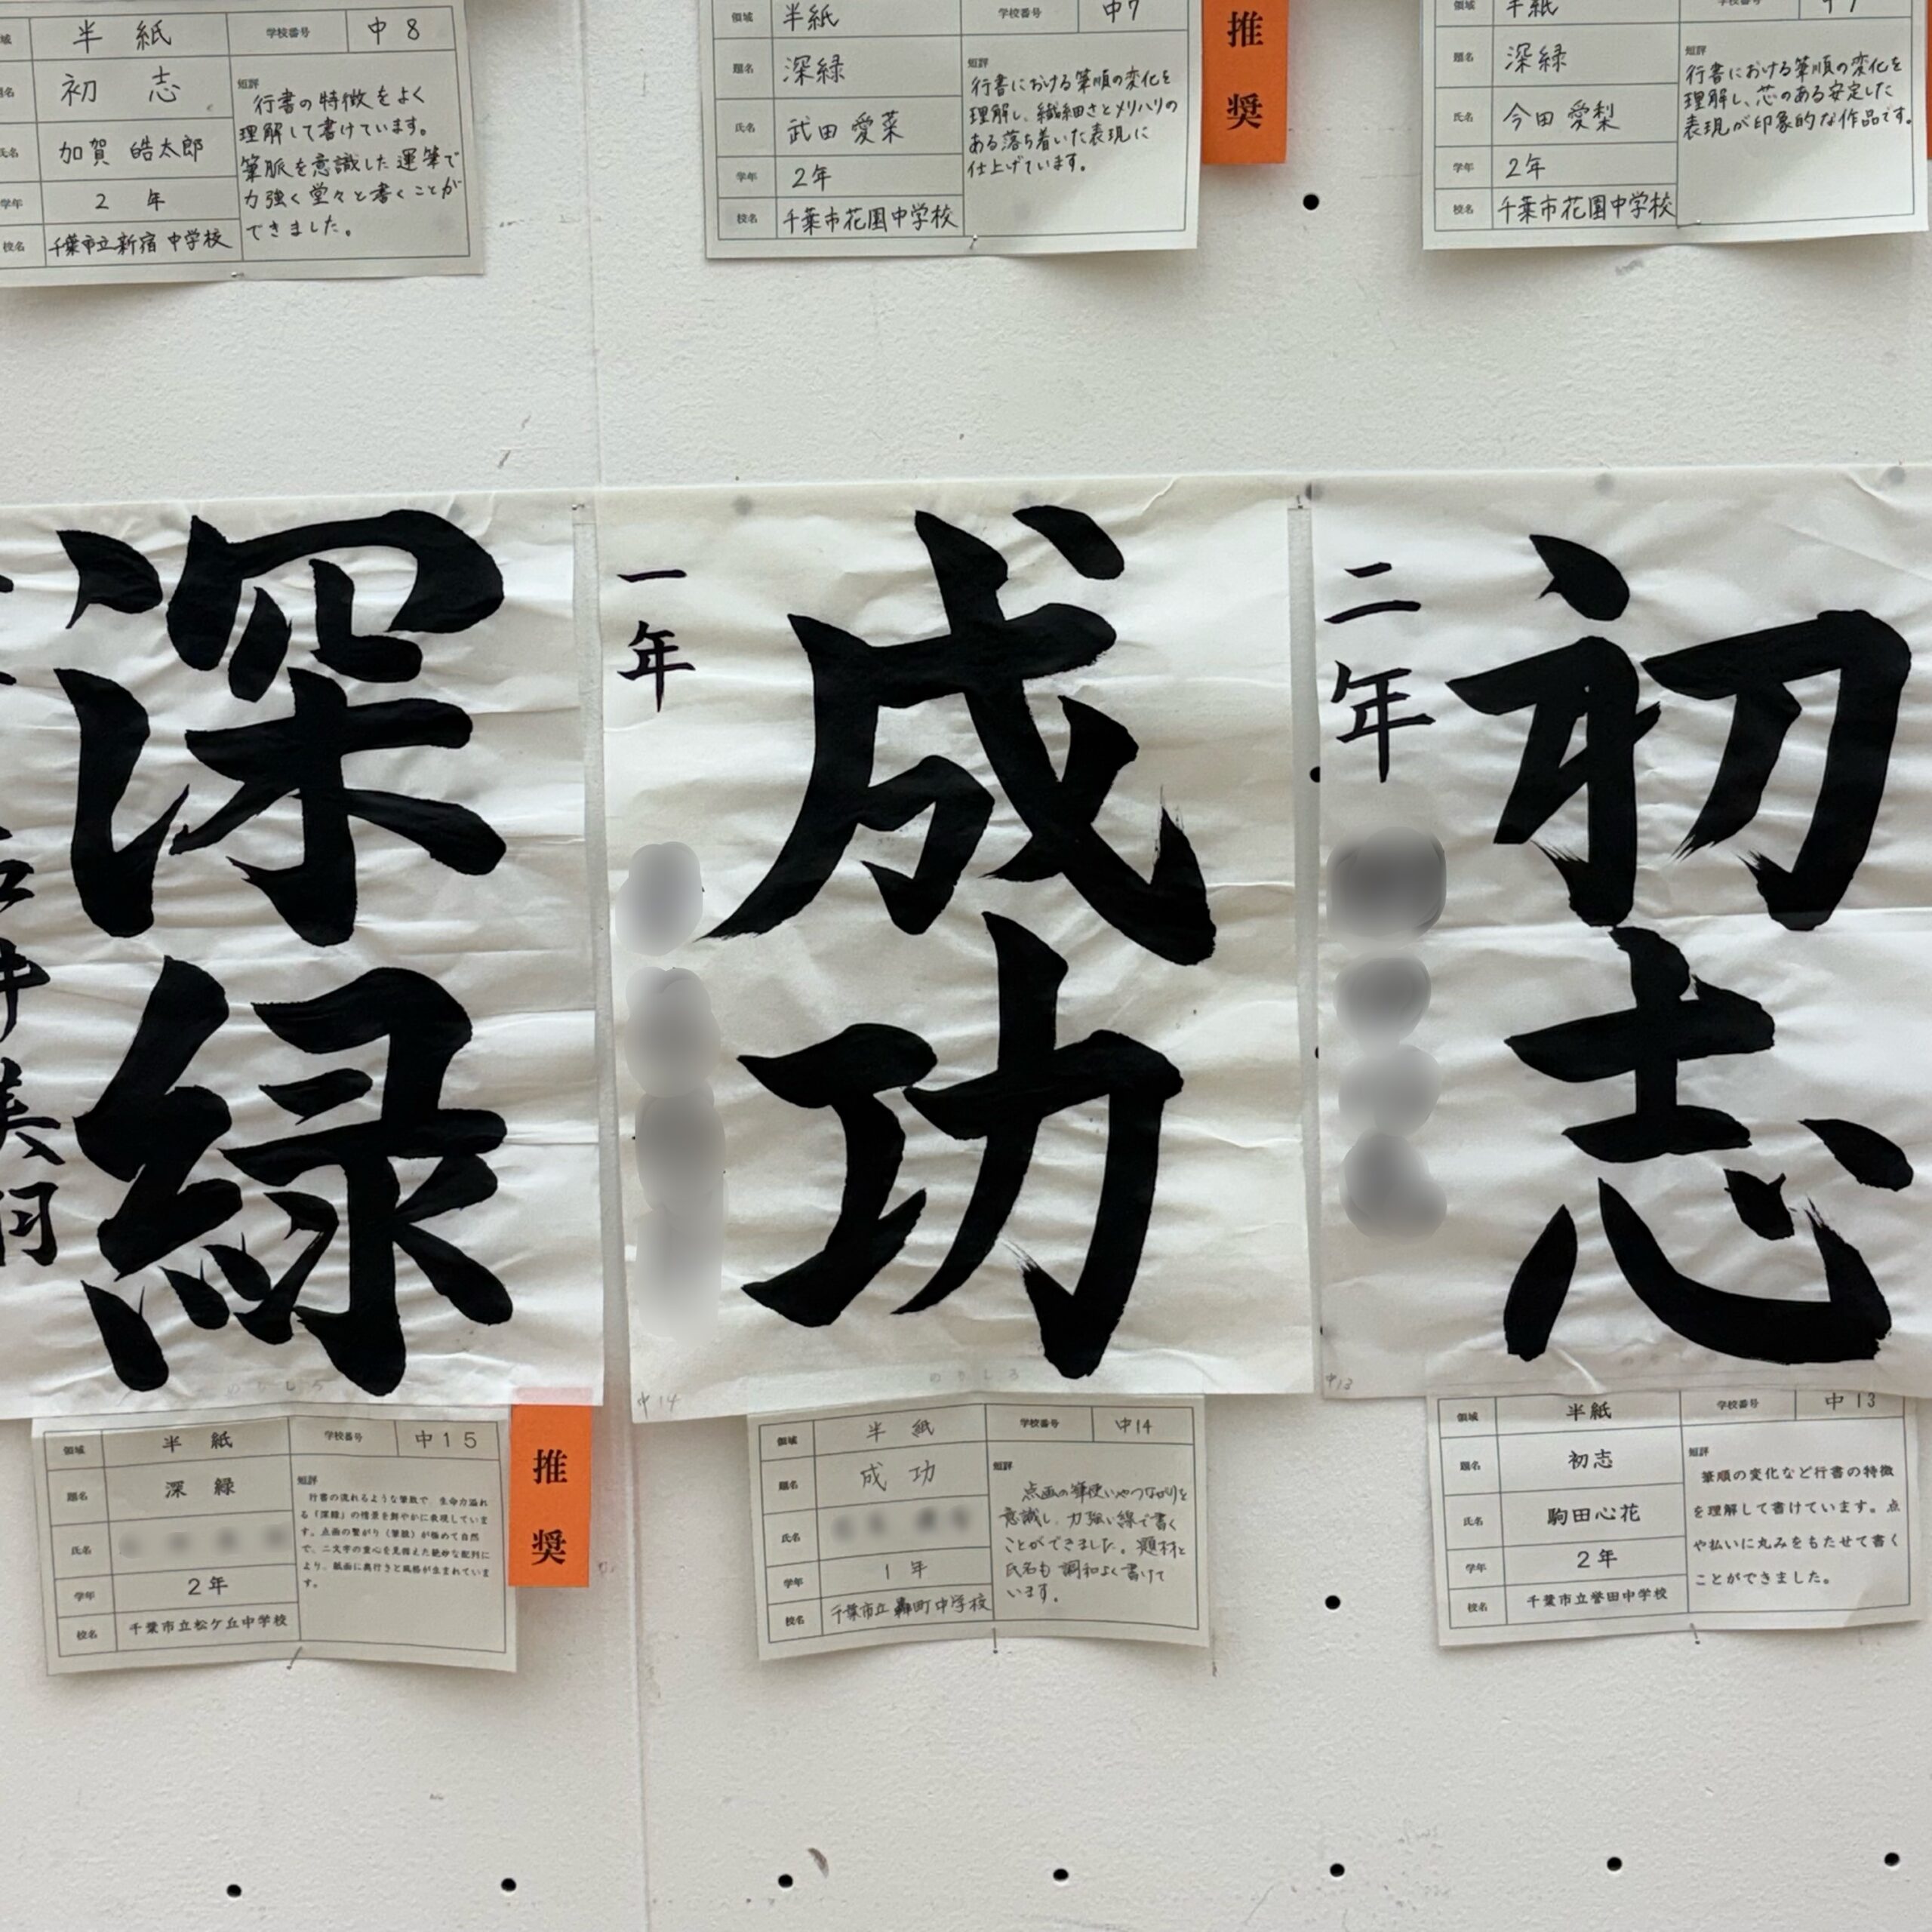 半紙
学校番号
中8
初志
加賀 皓太郎
2年
千葉市立新宿中学校
短評
行書の特徴をよく
理解して書けています。
筆脈を意識した運筆で
力強く堂々と書くことが
できました。
領域
半紙
学校番号
中7
題名
深緑
氏名
武田 愛菜
学年
2年
校名
千葉市花園中学校
短評
行書における筆順の変化を
理解し、繊細さとメリハリの
ある落ち着いた表現に
仕上げています。
推奨
領域
半紙
学校番号
題名
深緑
氏名
今田 愛梨
学年
2年
校名
千葉市花園中学校
短評
行書における筆順の変化を
理解し、芯のある安定した
表現が印象的な作品です。
深緑
成功
一年
初志
二年
のりしろ
中14
のりしろ
中13
領域
半紙
学校番号
中15
題名
深緑
氏名
学年
2年
校名
千葉市立松ケ丘中学校
短評
行書の流れるような筆致で、生命力溢れ
る「深緑」の情景を鮮やかに表現していま
す。点画の繋がり(筆脈)が極めて自然
で、二文字の重心を見据えた絶妙な配列に
より、紙面に奥行きと風格が生まれていま
す。
推奨
領域
半紙
学校番号
中14
題名
成功
氏名
学年
1年
校名
千葉市立轟町中学校
短評
点画の筆使いやつながりを
意識し、力強い線で書く
ことができました。題材と
氏名も調和よく書けて
います。
領域
半紙
学校番号
中13
題名
初志
氏名
駒田心花
学年
2年
校名
千葉市立誉田中学校
短評
筆順の変化など行書の特徴
を理解して書けています。点
や払いに丸みをもたせて書く
ことができました。